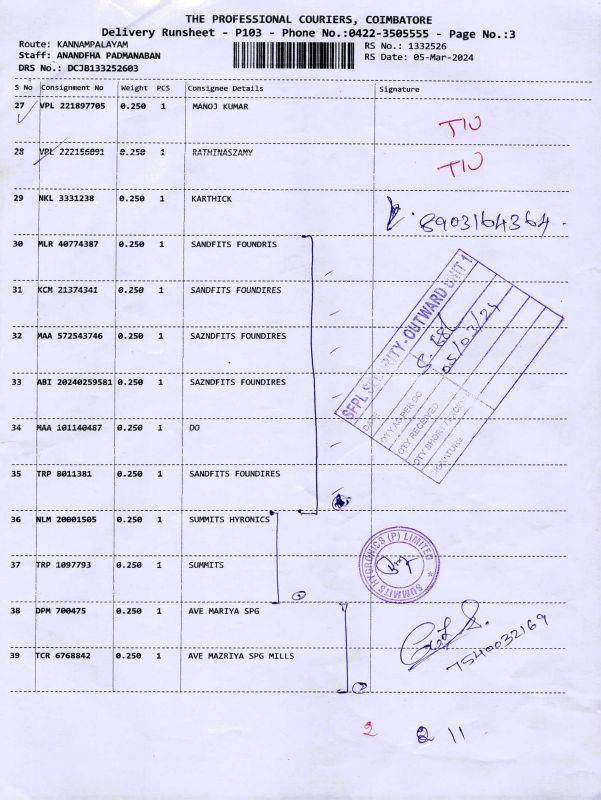 THE PROFESSIONAL COURIERS, COIMBATORE
Delivery Runsheet - P103 - Phone No.:0422-3505555 - Page No.:3
Route: KANNAMPALAYAM
RS No.: 1332526
Staff: ANANDFHA PADMANABAN
RS Date: 05-Mar-2024
DRS No.: DCJB133252603
S No Consignment No Weight PCS Consignee Details Signature
27 VPL 221897705 0.250 1 MANOJ KUMAR
TIU
28 VPL 222156091 0.250 1 RATHINASZAMY
TIU
29 NKL 3331238 0.250 1 KARTHICK
8903164364
30 MLR 40774387 0.250 1 SANDFITS FOUNDRIS
31 KCM 21374341 0.250 1 SANDFITS FOUNDIRES
32 MAA 572543746 0.250 1 SAZNDFITS FOUNDIRES
33 ABI 20240259581 0.250 1 SAZNDFITS FOUNDIRES
34 MAA 101140487 0.250 1 DO
35 TRP 8011381 0.250 1 SANDFITS FOUNDIRES
SFPL SECURITY-OUTWARD UNIT 1
DATE
05/03/24
QTY AS PER DC
QTY RECEIVED
QTY SHORT / EXCESS
SIGNATURE
36 NLM 20001505 0.250 1 SUMMITS HYRONICS
37 TRP 1097793 0.250 1 SUMMITS
SUMMITS HYGRONICS (P) LIMITED
38 DPM 700475 0.250 1 AVE MARIYA SPG
39 TCR 6768842 0.250 1 AVE MAZRIYA SPG MILLS
7540032169
2
2 11